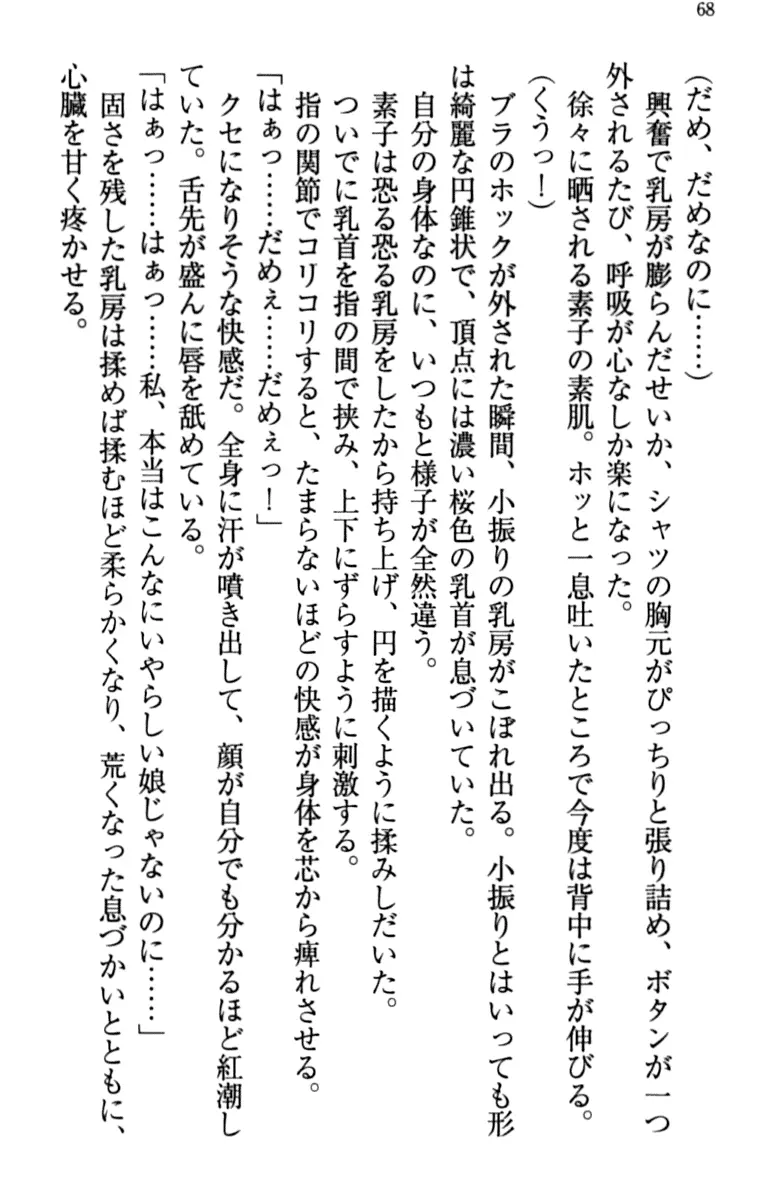 68
(だめ、だめなのに……)
興奮で乳房が膨らんだせいか、シャツの胸元がぴっちりと張り詰め、ボタンが一つ
外されるたび、呼吸が心なしか楽になった。
徐々に晒される素子の素肌。ホッと一息吐いたところで今度は背中に手が伸びる。
(くうっ!)
ブラのホックが外された瞬間、小振りの乳房がこぼれ出る。小振りとはいっても形
は綺麗な円錐状で、頂点には濃い桜色の乳首が息づいていた。
自分の身体なのに、いつもと様子が全然違う。
素子は恐る恐る乳房をしたから持ち上げ、円を描くように揉みしだいた。
ついでに乳首を指の間で挟み、上下にずらすように刺激する。
指の関節でコリコリすると、たまらないほどの快感が身体を芯から痺れさせる。
「はぁっ……だめぇ……だめぇっ!」
クセになりそうな快感だ。全身に汗が噴き出して、顔が自分でも分かるほど紅潮し
ていた。舌先が盛んに唇を舐めている。
「はぁっ……はぁっ……私、本当はこんなにいやらしい娘じゃないのに……」
固さを残した乳房は揉めば揉むほど柔らかくなり、荒くなった息づかいとともに、
心臓を甘く疼かせる。